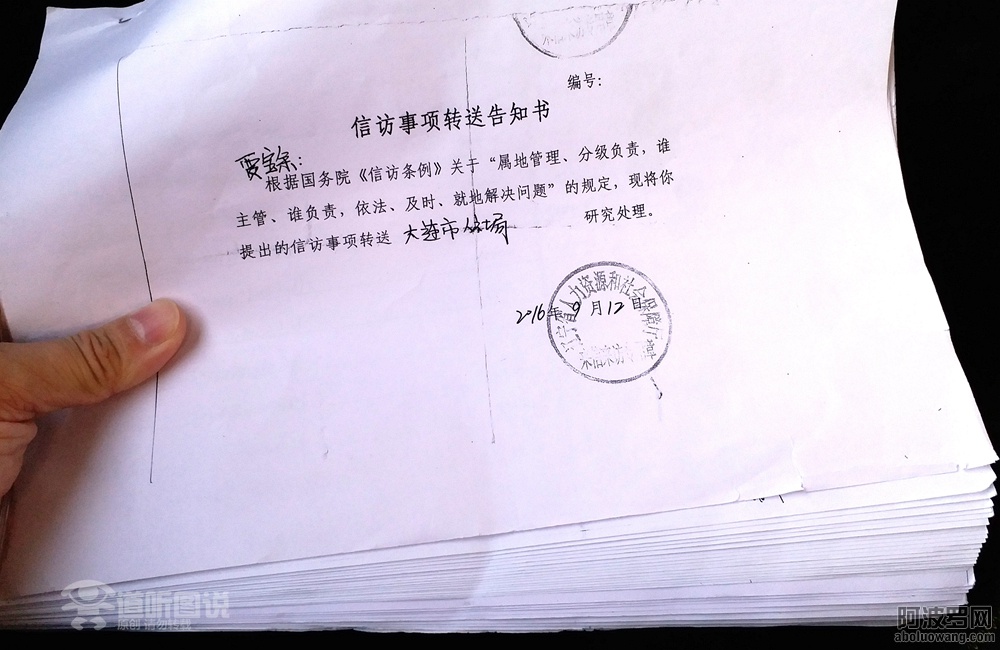 编号：
信访事项转送告知书
根据国务院《信访条例》关于“属地管理、分级负责，谁
主管、谁负责，依法、及时、就地解决问题”的规定，现将你
提出的信访事项转送 大连市 局 研究处理。
2016年9月12日
人力资源和社会保障厅
来信来访
道听图说
原创 请勿转载
阿波罗网
aboluowang.com